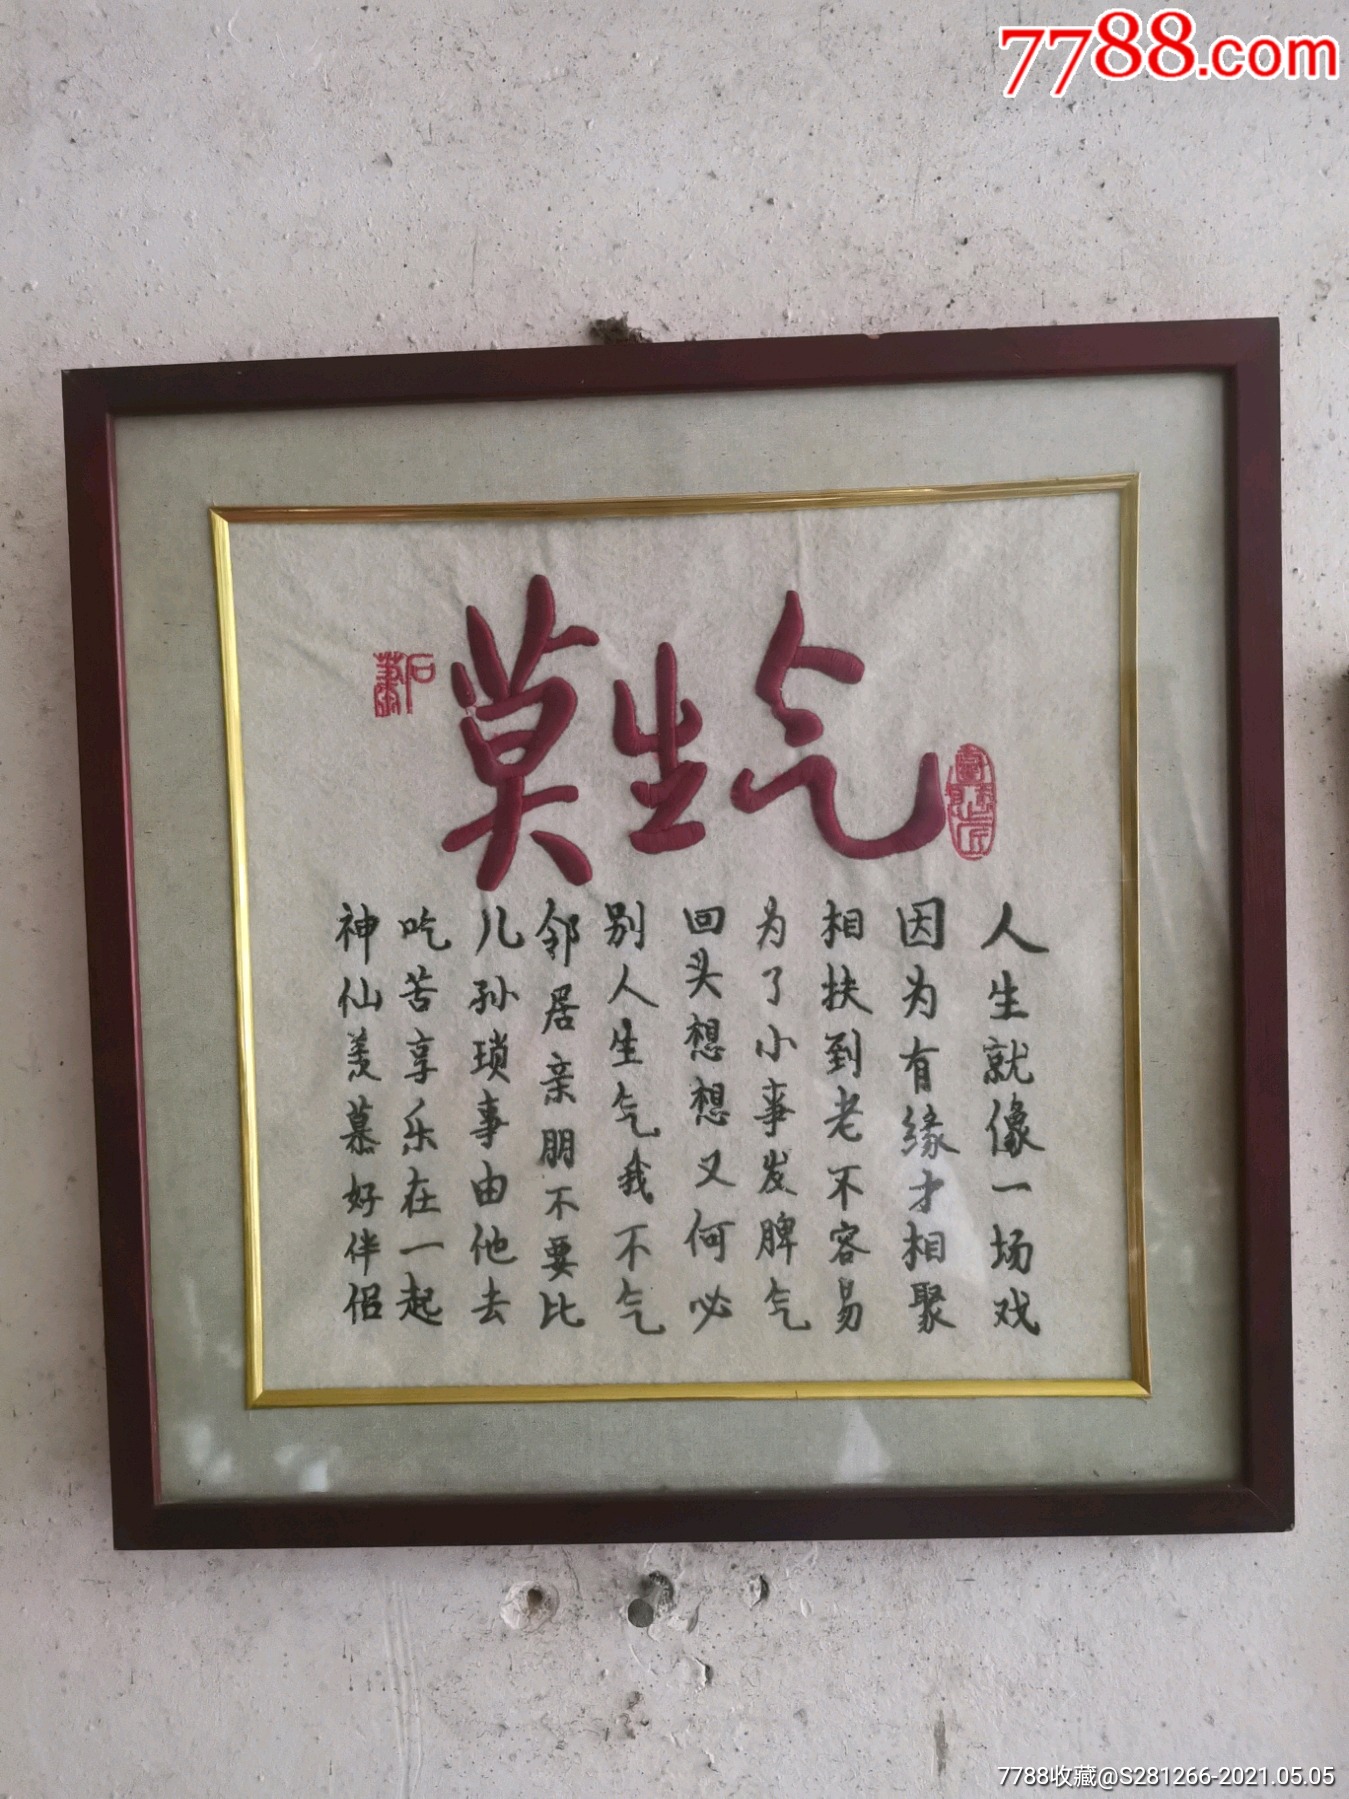 7788.com
莫生气
人生就像一场戏
因为有缘才相聚
相扶到老不容易
为了小事发脾气
回头想想又何必
别人生气我不气
邻居亲朋不要比
儿孙琐事由他去
吃苦享乐在一起
神仙羡慕好伴侣
7788收藏@S281266-2021.05.05